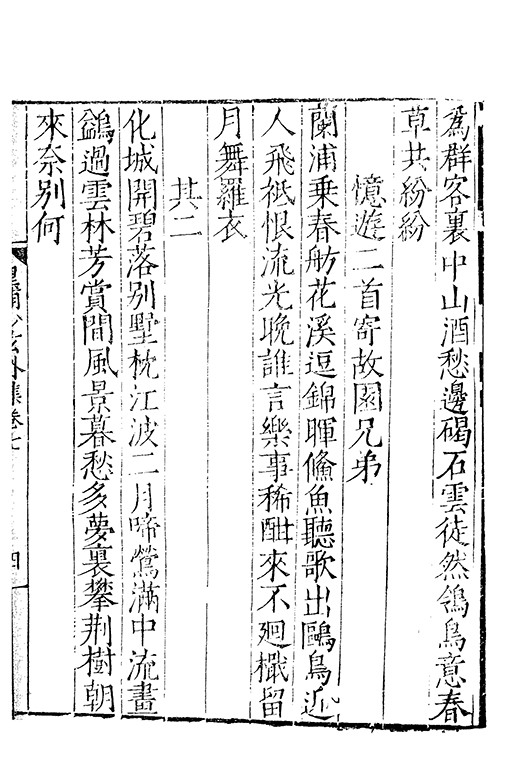 爲群客裏中山酒愁邊碣石雲徒然鴒鳥意春
草共紛紛
憶遊二首寄故園兄弟
蘭浦乗春舫花溪逗錦暉鯈魚聽歌出鷗鳥近
人飛秪恨流光晚誰言樂事稀酣來不廻檝留
月舞羅衣
其二
化城開碧落别墅枕江波二月啼鶯滿中流畫
鷁過雲林芳賞間風景暮愁多夢裏攀荆樹朝
來奈别何
皇甫少玄外集卷七
四